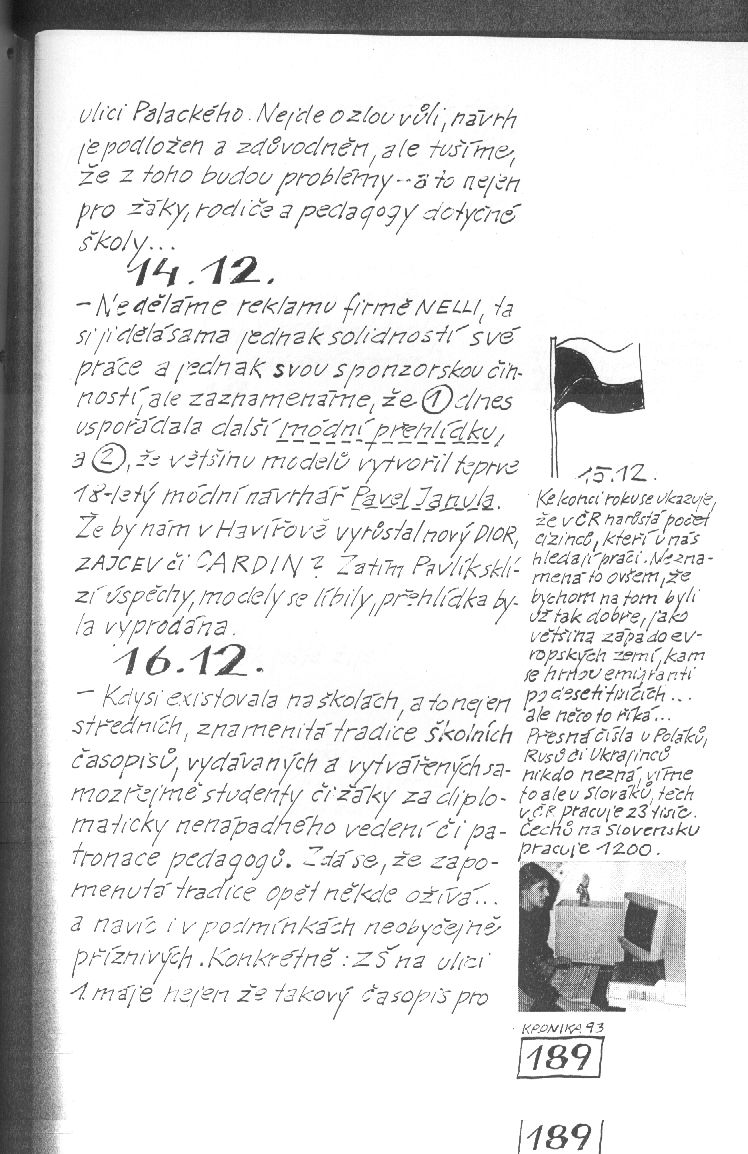 ulici Palackého. Nejde o zlou vůli, návrh
je podložen a zdůvodněn, ale tušíme,
že z toho budou problémy -- a to nejen
pro žáky, rodiče a pedagogy dotyčné
školy...
14.12.
- Neděláme reklamu firmě NELLI, ta
si ji dělá sama jednak solidností své
práce a jednak svou sponzorskou čin-
ností, ale zaznamenáme, že 1 dnes
uspořádala další módní přehlídku,
a 2, že většinu modelů vytvořil teprve
18-letý módní návrhář Pavel Janula.
Že by nám v Havířově vyrůstal nový DIOR,
ZAJCEV či CARDIN? Zatím Pavlík sklí-
zí úspěchy, modely se líbily, přehlídka by-
la vyprodána.
16.12.
- Kdysi existovala na školách, a to nejen
středních, znamenitá tradice školních
časopisů, vydávaných a vytvářených sa-
mozřejmě studenty či žáky za diplo-
maticky nenápadného vedení či pa-
tronace pedagogů. Zdá se, že zapo-
menutá tradice opět někde ožívá...
a navíc i v podmínkách neobyčejně
příznivých. Konkrétně: ZŠ na ulici
1. máje nejen že takový časopis pro
15.12.
Ke konci roku se ukazuje,
že v ČR narůstá počet
cizinců, kteří u nás
hledají práci. Nezna-
mená to ovšem, že
bychom na tom byli
už tak dobře, jako
většina západoev-
ropských zemí, kam
se hrnou emigranti
po desetitisících...
ale něco to říká...
Přesná čísla u Poláků,
Rusů či Ukrajinců
nikdo nezná, víme
to ale u Slováků, těch
v ČR pracuje 23 tisíc.
Čechů na Slovensku
pracuje 1200.
KRONIKA 93
189
189